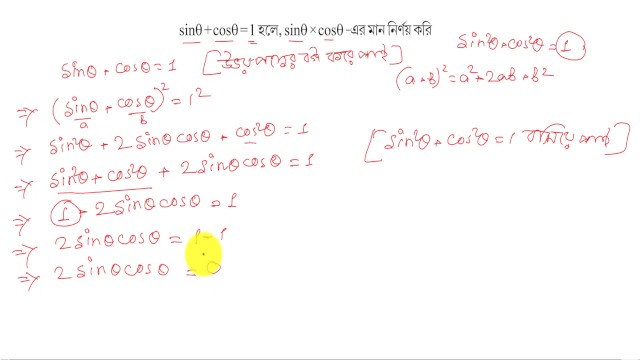 sinθ+cosθ=1 হলে, sinθ×cosθ -এর মান নির্ণয় করি
sinθ + cosθ = 1 [উভয়পক্ষের বর্গ করে পাই]
sin²θ+cos²θ = 1
(a+b)² = a²+2ab+b²
⇒ (sinθ + cosθ)² = 1²
a b
⇒ sin²θ + 2sinθcosθ + cos²θ = 1
[sin²θ + cos²θ = 1 বসিয়ে পাই]
⇒ sin²θ + cos²θ + 2sinθcosθ = 1
⇒ 1 + 2sinθcosθ = 1
⇒ 2sinθcosθ = 1-1
⇒ 2sinθcosθ = 0